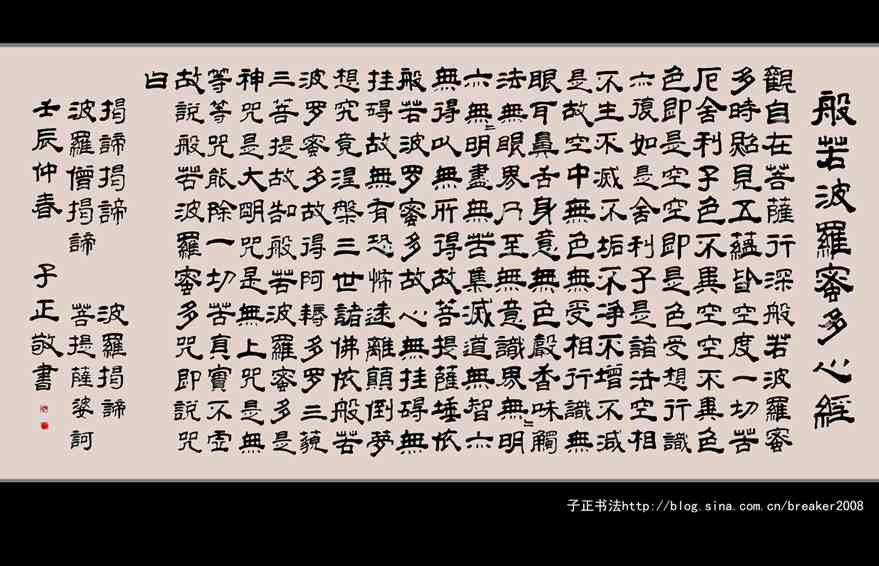 般若波羅蜜多心經
觀自在菩薩行深般若波羅蜜
多時照見五蘊皆空度一切苦
厄舍利子色不異空空不異色
色即是空空即是色受想行識
亦復如是舍利子是諸法空相
不生不滅不垢不净不增不減
是故空中無色無受相行識無
眼耳鼻舌身意無色聲香味觸
法無眼界乃至無意識界無明
亦無明盡無苦集滅道無智亦
無得以無所得故菩提薩埵依
般若波罗蜜多故心無挂碍無
挂碍故無有恐怖遠離顛倒夢
想究竟涅槃三世諸佛依般若
波罗蜜多故得阿耨多罗三藐
三菩提故知般若波羅蜜多是
神咒是大明咒是無上咒是無
等等咒能除一切苦真實不虛
故說般若波羅蜜多咒即說咒
曰
揭諦揭諦 波羅揭諦
波羅僧揭諦 菩提薩婆訶
壬辰仲春 子正敬書
子正书法http://blog.sina.com.cn/breaker2008